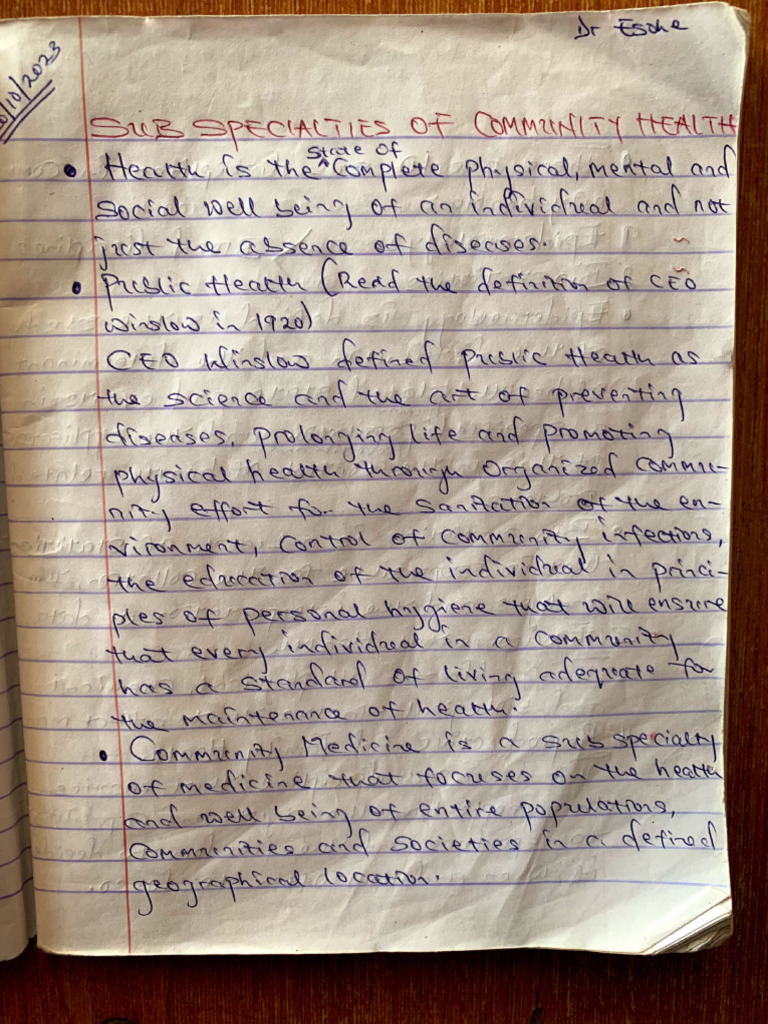 Dr Esohe
/10/2023
SUB SPECIALTIES OF COMMUNITY HEALTH
state of
• Health is the ^ Complete physical, mental and
social well being of an individual and not
just the absence of diseases.
• Public Health (Read the definition of CEO
Winslow in 1920)
CEO Winslow defined public Health as
the science and the art of preventing
diseases, prolonging life and promoting
physical health through organized commu-
nity effort for the sanitation of the en-
vironment, control of community infections,
the education of the individual in princi-
ples of personal hygiene that will ensure
that every individual in a community
has a standard of living adequate for
the maintenance of health.
• Community Medicine is a sub specialty
of medicine that focuses on the health
and well being of entire populations,
communities and societies in a defined
geographical location.